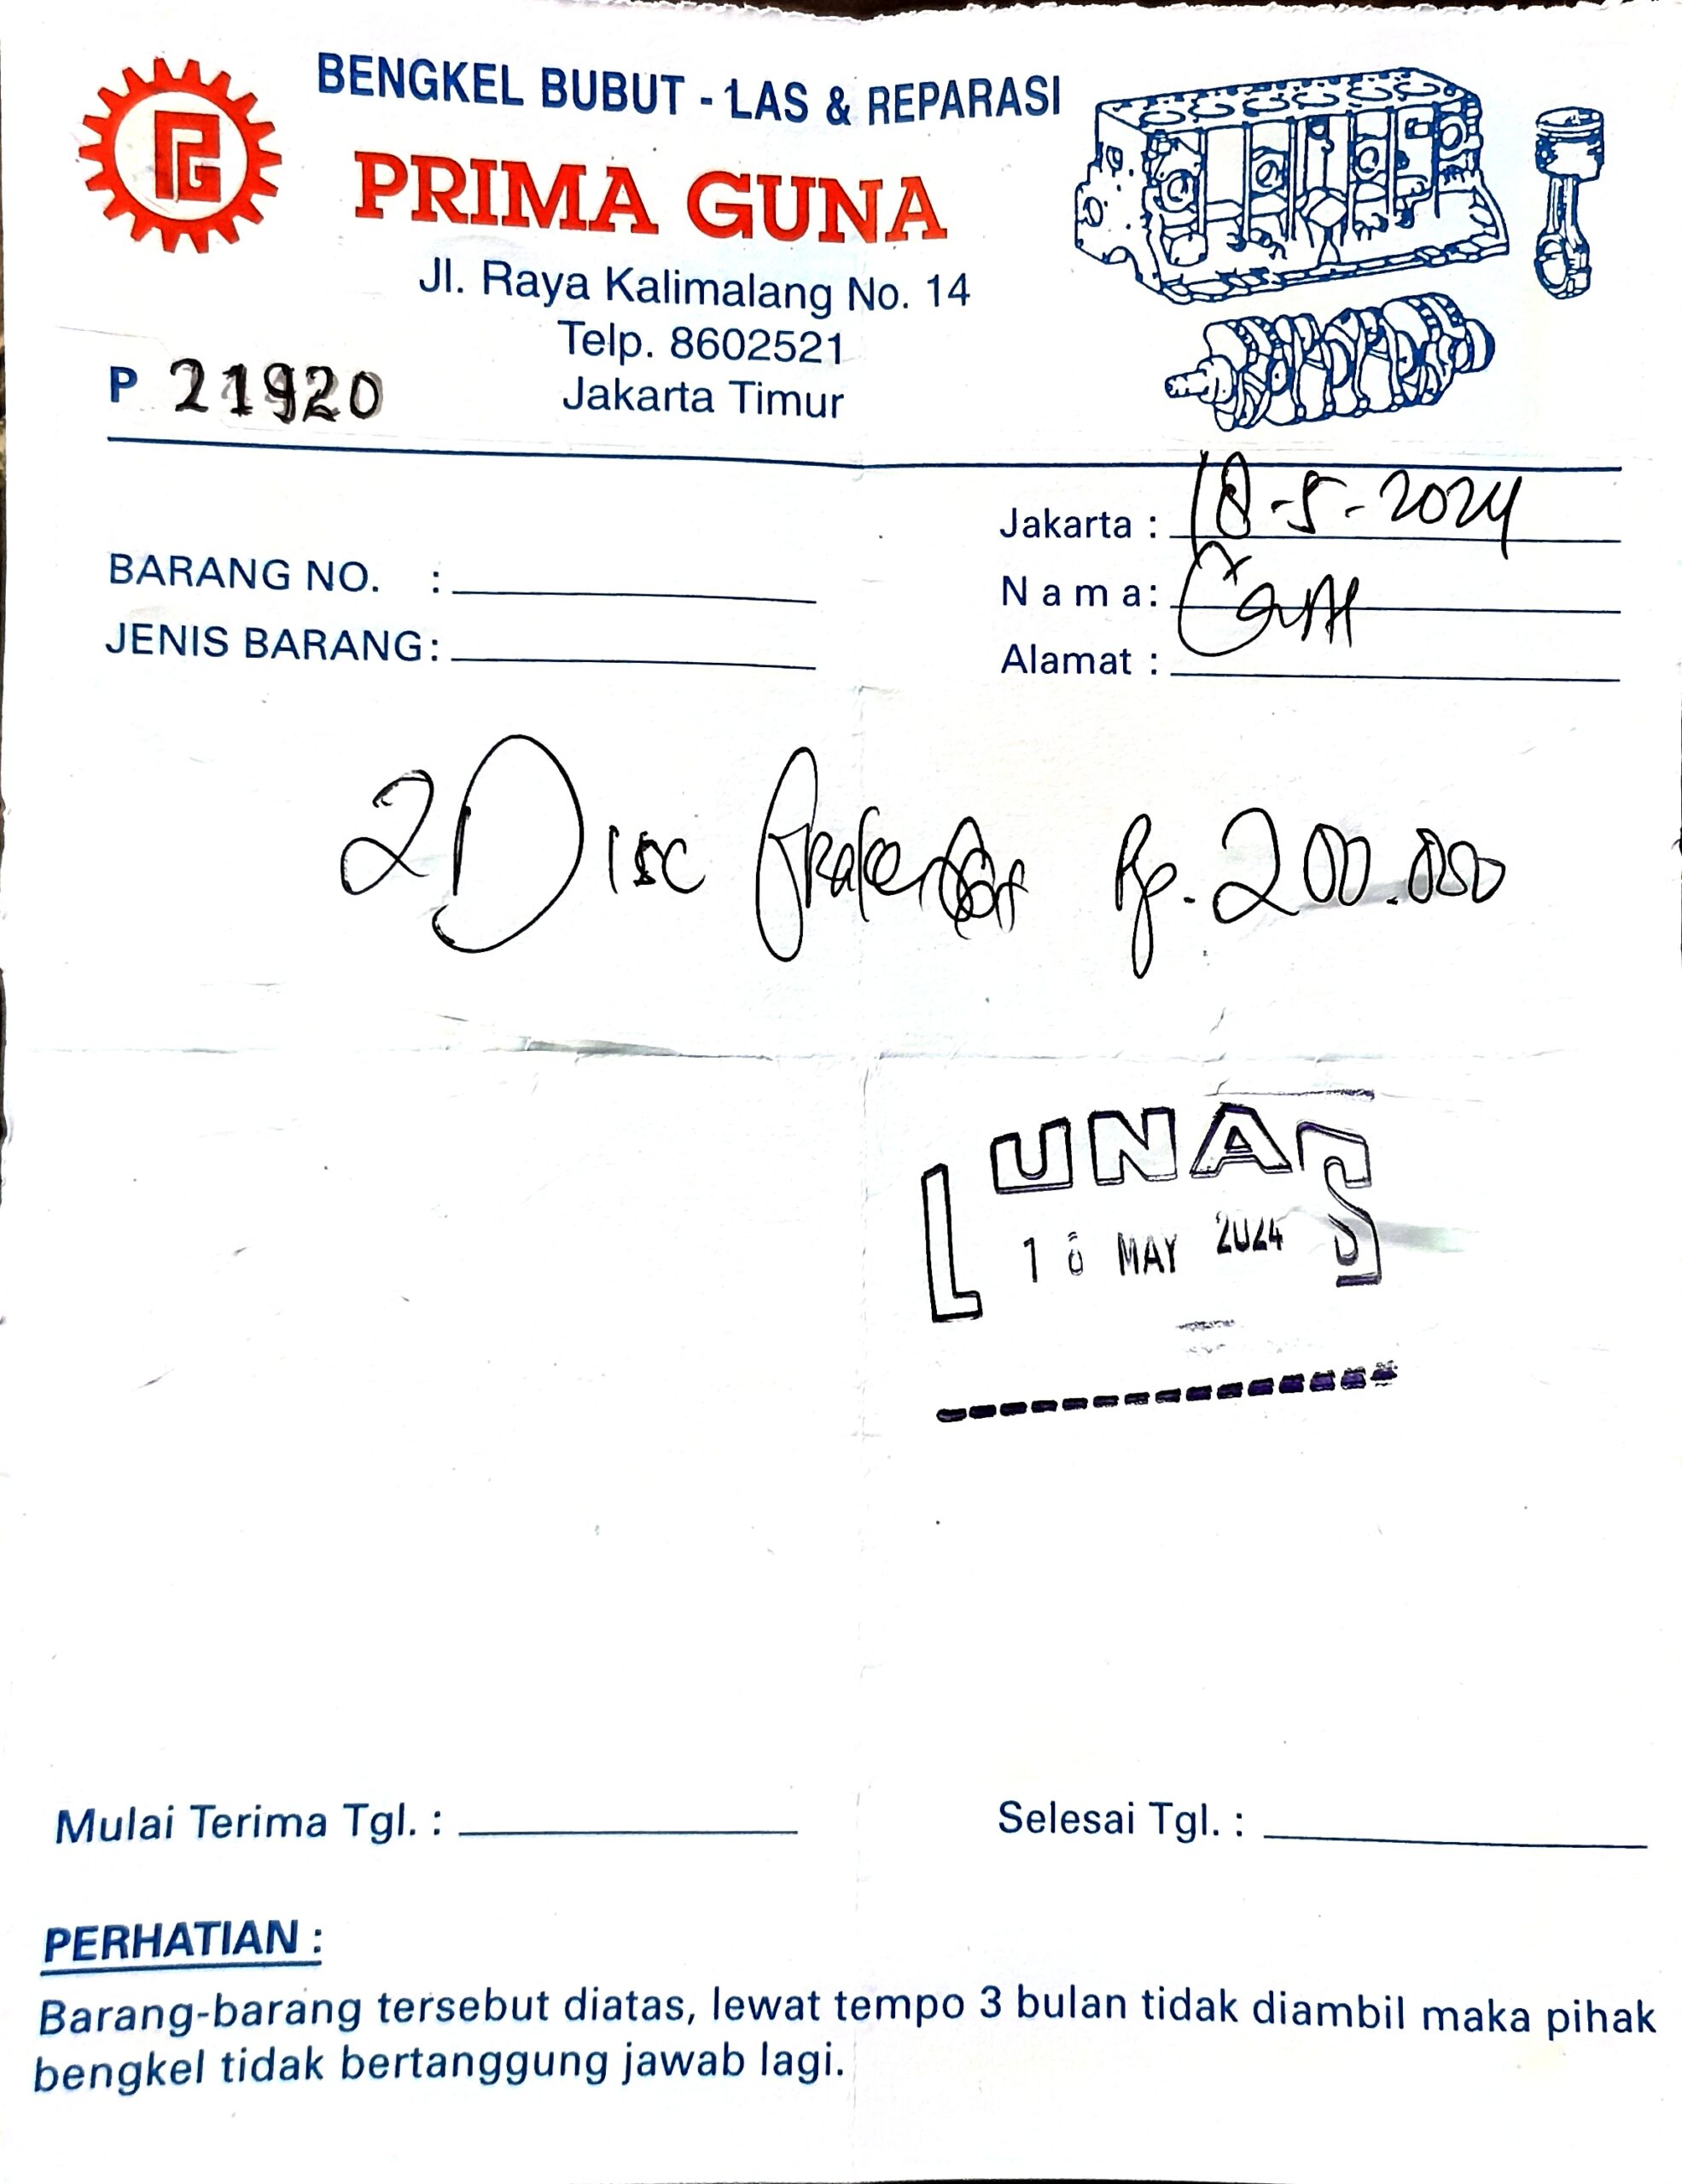 BENGKEL BUBUT - LAS & REPARASI
PG
PRIMA GUNA
Jl. Raya Kalimalang No. 14
Telp. 8602521
Jakarta Timur
P 21920
Jakarta : 18-5-2024
BARANG NO. :
Nama:
JENIS BARANG:
Alamat :
2 Disc Rp. 200.000
LUNAS
18 MAY 2024
Mulai Terima Tgl. :
Selesai Tgl. :
PERHATIAN :
Barang-barang tersebut diatas, lewat tempo 3 bulan tidak diambil maka pihak
bengkel tidak bertanggung jawab lagi.